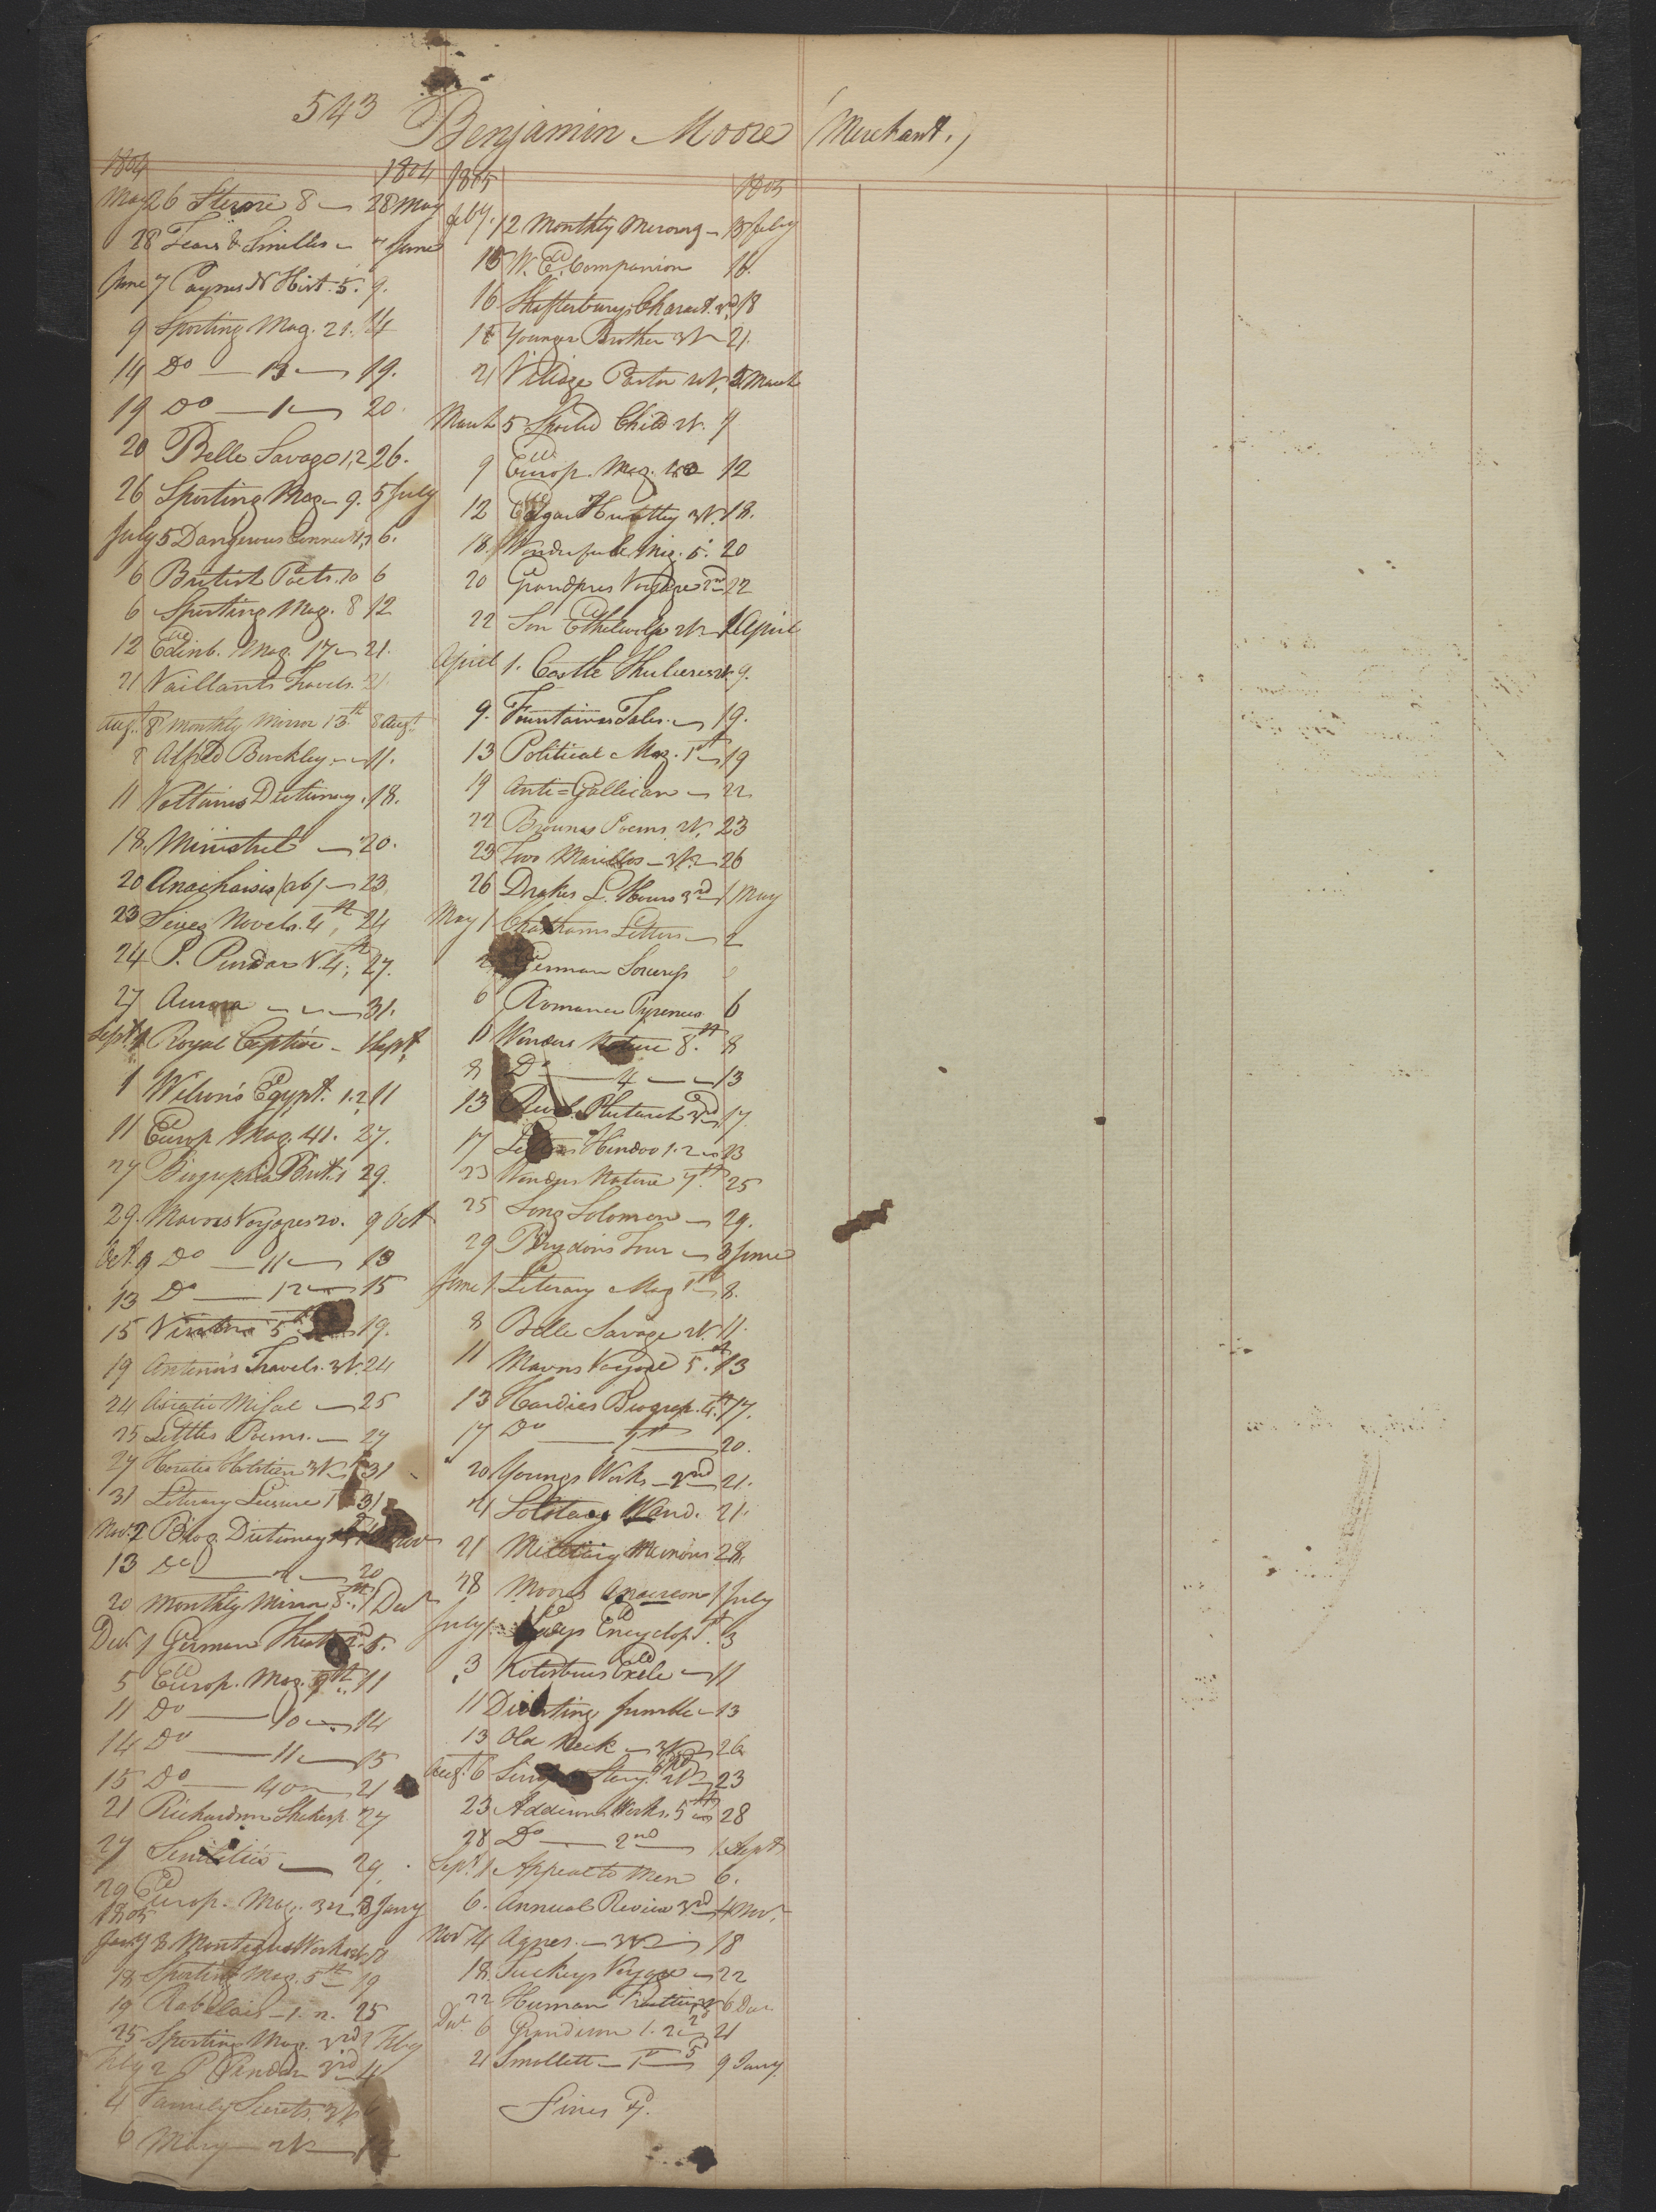 543 Benjamin Moore (Merchant.)
1804 1804
May 26 Sterne 8 28 May
28 Tears & Smiles 7 June
June 7 Paynes N Hist. 5. 9.
9 Sporting Mag. 21. 14
14 Do 13 19.
19 Do 1 20.
20 Belle Savage 1,2 26.
26 Sporting Mag 9. 5 July
July 5 Dangerous Connect 1,2 6.
6 British Poets. 10 6
6 Sporting Mag. 8 12
12 Edinb. Mag. 17 21.
21 Vaillants Travels. 21.
Augt. 8 Monthly Mirror 13th 8 Augt.
8 Alfred Berckley 11.
11 Voltaires Dictionary. 18.
18. Minstrel 20.
20 Anacharsis (ab) 23
23 Series Novels. 4th, 24
24 P. Pindar V. 4th; 27.
27 Aurora 31.
Sept 1 Royal Captive 1 Sept.
1 Wilson's Egypt. 1.2 11
11 Europ Mag. 41. 27.
27 Biographia Brit. 1 29.
29. Mavors Voyages 20. 9 Oct
Oct. 9 Do 11 13
13 Do 12 15
15 5th 19.
19 Antenors Travels. 3V. 24
24 Asiatic Misal 25
25 Littles Poems. 27
27 Horatio Holstien 3V 31
31 Literary Leisure 1st 31
Nov. 2 Biog. Dictionary Nov
13 Do 20
20 Monthly Mirror 8th. 1 Decr
Decr 1 German Theat 5.
5 Europ. Mag. 9th. 11
11 Do 10 14
14 Do 11 15
15 Do 40 21
21 Richardson Shakesp. 27
27 29.
29 Europ. Mag. 32 3 Jany
1805
Jany 3 Montagues Works
18 Sporting Mag. 5th 19
19 Rabelais 1. 2. 25
25 Sporting Mag. 3rd 2 Feby
Feby 2 P Pindar 3rd 4
4 Family Secrets. 3V. 6
6 Mary 2V
1805 1805
Feby. 12 Monthly Mirror 13 Feby
13 W. Companion 16.
16 Shaftesburys Charact. 3rd 18
18 Younger Brother 2V 21.
21 Village Pastor 2V. 5 March
March 5 Spoiled Child 2V. 9
9 Europ. Mag. 12
12 Edgar Huntley 3V. 18.
18. Wonderful Mag. 5. 20
20 Grandpres Voyage 2nd 22
22 Son Ethelwolf 2V 1 April
April 1. Castle 2V. 9.
9. Fountaines Tales. 19.
13 Political Mag. 1st 19
19 Anti=Gallican 22
22 Brownes Poems. 2V. 23
23 Two Marillos 3V. 26
26 Drakes L. Hours 3rd 1 May
May 1 Chathams Letters 2
2 German Sorceress
6 Romance Pyrenees 6
6 Wonders Nature 8th 8
8 Do 4 13
13 Plutarch 3rd 17.
17 Letters Hindoo 1.2 23
23 Wonders Nature 7th. 25
25 Song Solomon 29.
29 Brydon's Tour 3 June
June 1. Literary Mag 1st 8.
8 Belle Savage 2V. 11.
11 Mavors Voyage 5th. 13
13 Hardies Biograp. 4th. 17.
17 Do 20.
20 Youngs Works 2nd 21.
21 Solitary Wand. 21.
21 Military Memoirs 28.
28 Moores Anacreon 1 July
July 1. Ladys Encyclop. 1st. 3
3 Kotzebues Exile 11
11 Diverting Jumble 13
13 Old Nick 3V 26
Augt. 6 Simple Story. 2V 23
23 Addisons Works. 5th 28
28 Do 2nd 1 Sept
Sept. 1 Appeal to Men 6.
6. Annual Review 3rd 4 Nov.
Nov 4 Agnes. 3V 18
18. Tuckeys Voyage 22
22 Human 6 Dec
Dec. 6 Grandison 1. 2 21
21 Smollett 1st 5 9 Jany.
Fines Pd.